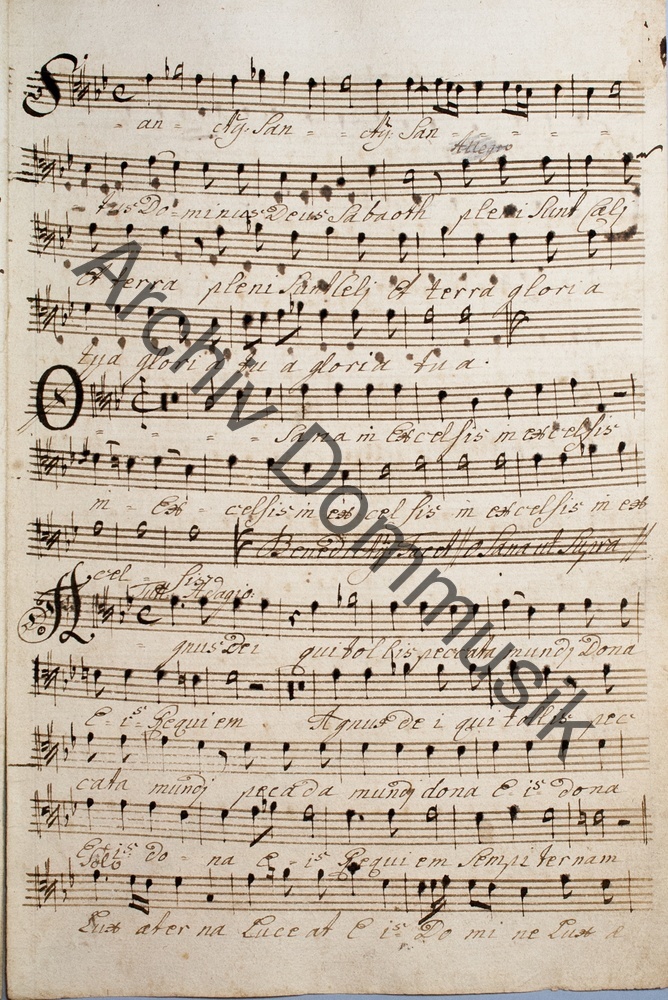 San - ctus San - ctus San - - - - -
Allegro
tus Dominus Deus Sabaoth pleni Sunt Cœlj
Et terra pleni Sunt Celj Et terra gloria
tua gloria tu a gloria tu a.
O - - - - Sana in Excelsis in excelsis
in - Ex - celsis in ex cel sis in excelsis in ex
Benedictus tacet // o Sana ut Supra //
cel - sis
Tutti Adagio:
Agnus Dei qui tollis peccata mundj Dona
E - is - Requiem Agnus de i qui tollis pec
cata mundj pecada mundj dona E is dona
E is do - na E - is Requi em Sempi ternam
Solo
Lux æter na Luce at E is Do mi ne Lux æ
Archiv Dommusik